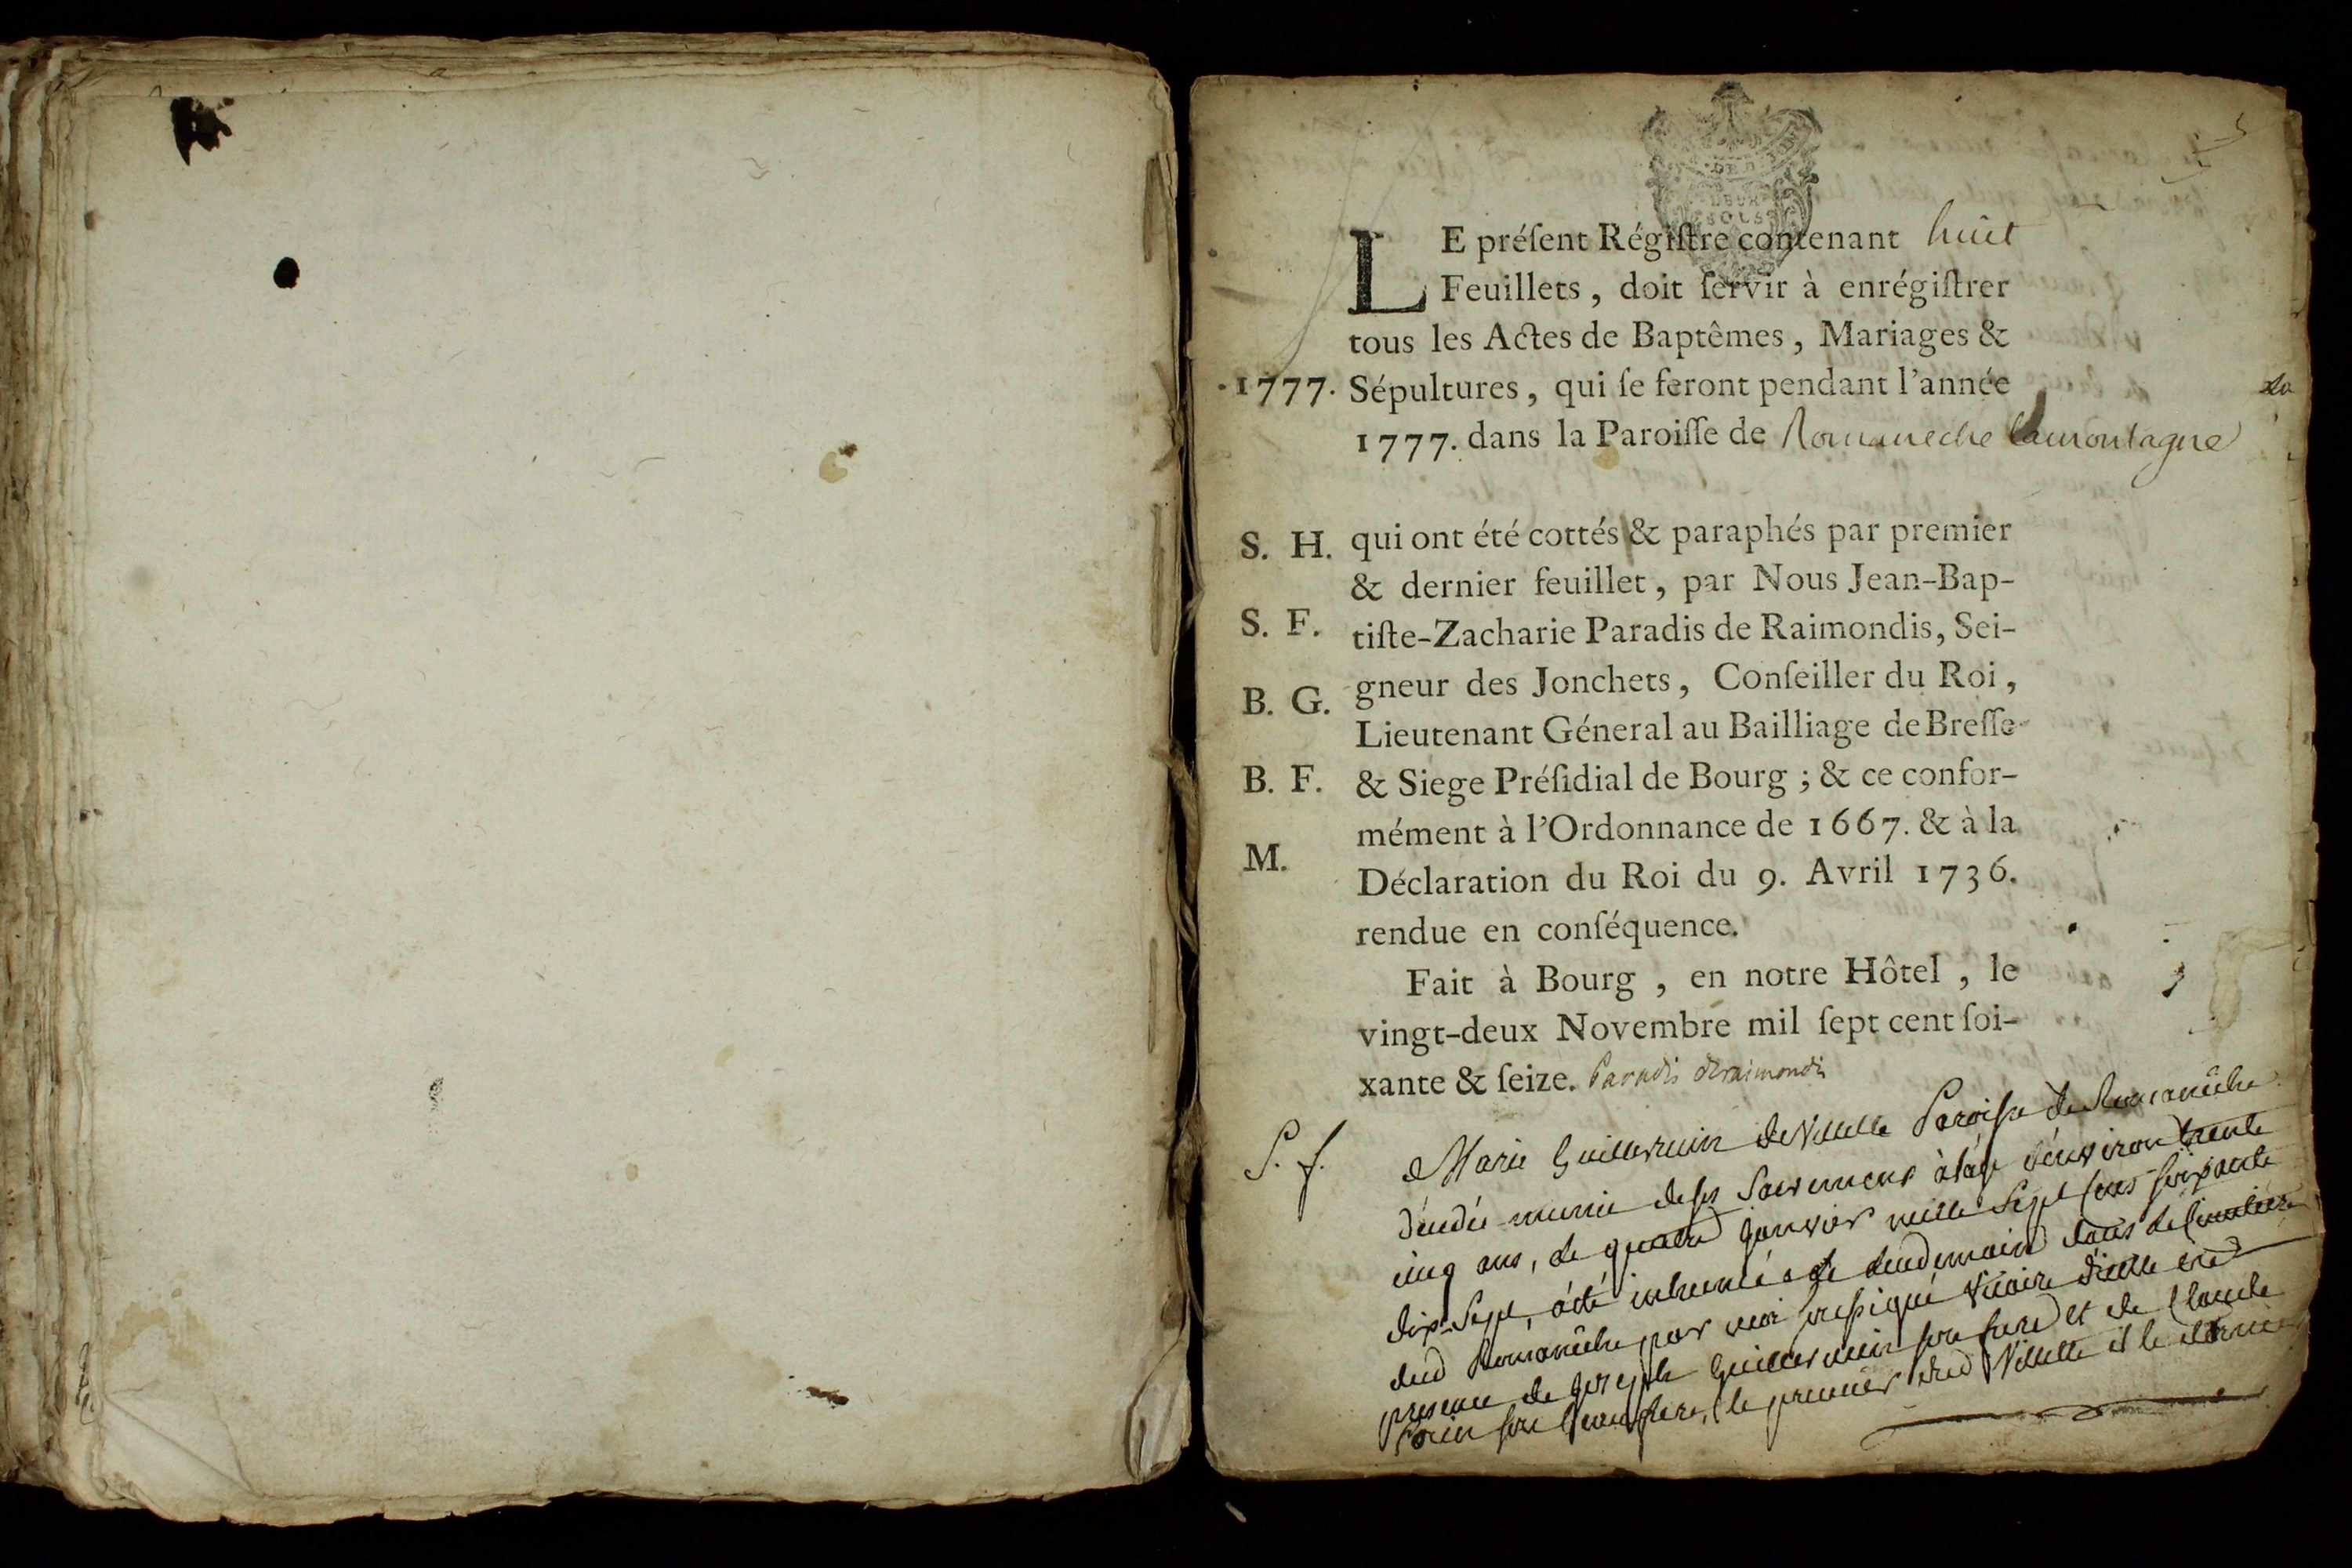 DEUX
SOLS
LE préſent Régiſtre contenant huit
Feuillets, doit ſervir à enrégiſtrer
tous les Actes de Baptêmes, Mariages &
.1777. Sépultures, qui ſe feront pendant l'année
1777. dans la Paroiſſe de Romaneche lamontagne
S. H. qui ont été cottés & paraphés par premier
& dernier feuillet, par Nous Jean-Bap-
S. F. tiſte-Zacharie Paradis de Raimondis, Sei-
B. G. gneur des Jonchets, Conſeiller du Roi,
Lieutenant Géneral au Bailliage de Breſſe
B. F. & Siege Préſidial de Bourg ; & ce confor-
mément à l'Ordonnance de 1667. & à la
M. Déclaration du Roi du 9. Avril 1736.
rendue en conſéquence.
Fait à Bourg, en notre Hôtel, le
vingt-deux Novembre mil ſept cent ſoi-
xante & ſeize. Paradis deraimondis
S. f. Marie Guillermin de Villette Paroisse de Romanêche
munie de ses Sacremens à l'âge d'environ trente
cinq ans, le quatre janvier mille Sept Cens soixante
dix-Sept, a été inhumée le lendemain dans le Cimetière
dud Romanêche par moi soussigné Vicaire
presence de Joseph Guillermin son frere et de Claude
son beaufrere, le premier dud Villette et le dernier